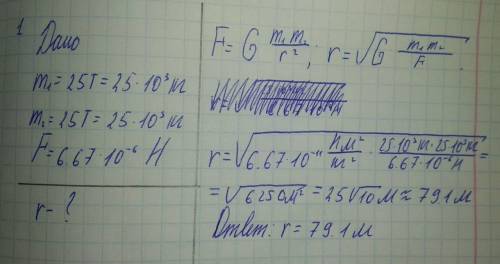 1
Дано
m₁ = 25т = 25·10³ кг
m₂ = 25т = 25·10³ кг
F = 6.67·10⁻⁶ Н
r - ?
F = G m₁m₂/r² ; r = √(G m₁m₂/F).
r = √(6.67·10⁻¹¹ Нм²/кг² · 25·10³кг·25·10³кг/6.67·10⁻⁶Н) =
= √(6250м²) = 25√10 м ≈ 79.1 м
Ответ: r = 79.1 м